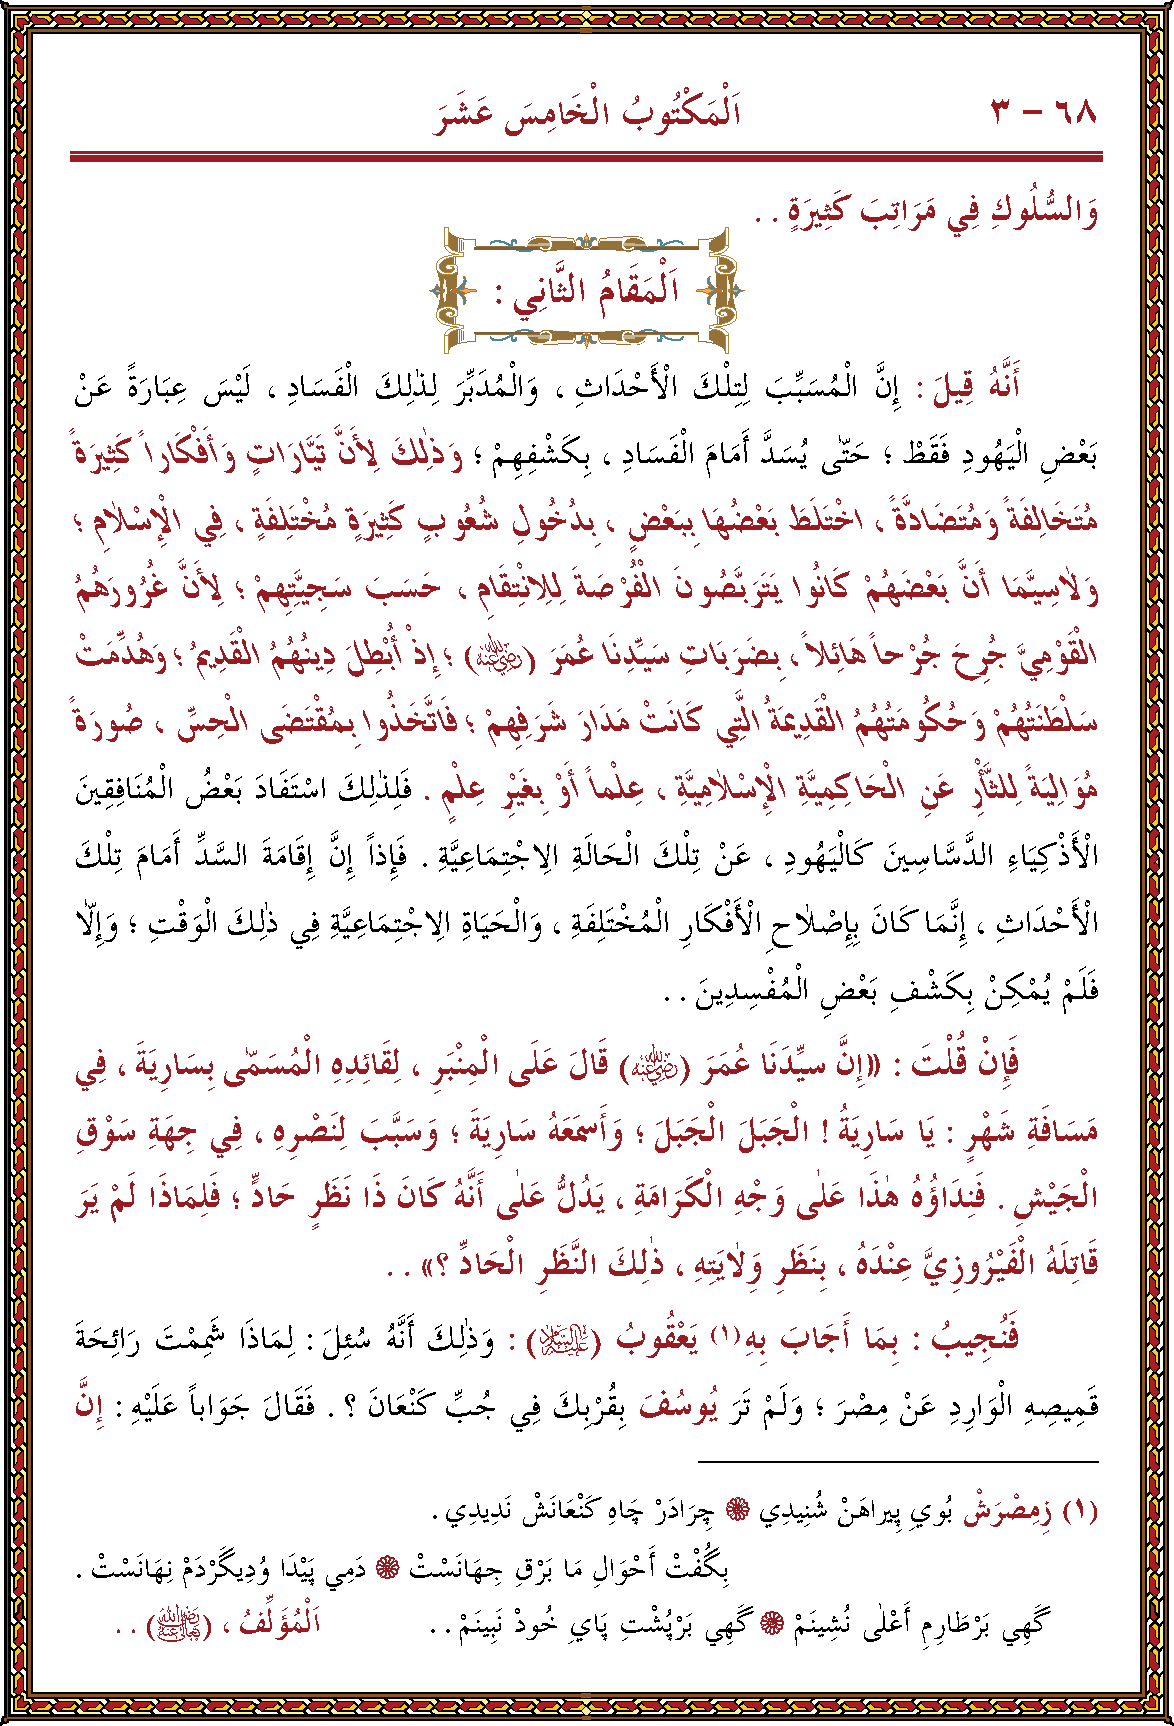 ٦٨ - ٣
اَلْمَكْتُوبُ الْخَامِسَ عَشَرَ
وَالسُّلُوكِ فِي مَرَاتِبَ كَثِيرَةٍ . .
اَلْمَقَامُ الثَّانِي :
أَنَّهُ قِيلَ : إِنَّ الْمُسَبِّبَ لِتِلْكَ الْأَحْدَاثِ ، وَالْمُدَبِّرَ لِذٰلِكَ الْفَسَادِ ، لَيْسَ عِبَارَةً عَنْ
بَعْضِ الْيَهُودِ فَقَطْ ؛ حَتّٰى يُسَدَّ أَمَامَ الْفَسَادِ ، بِكَشْفِهِمْ ؛ وَذٰلِكَ لِأَنَّ تَيَّارَاتٍ وَأَفْكَاراً كَثِيرَةً
مُتَخَالِفَةً وَمُتَضَادَّةً ، اخْتَلَطَ بَعْضُهَا بِبَعْضٍ ، بِدُخُولِ شُعُوبٍ كَثِيرَةٍ مُخْتَلِفَةٍ ، فِي الْإِسْلَامِ ؛
وَلَاسِيَّمَا أَنَّ بَعْضَهُمْ كَانُوا يَتَرَبَّصُونَ الْفُرْصَةَ لِلِانْتِقَامِ ، حَسَبَ سَجِيَّتِهِمْ ؛ لِأَنَّ غُرُورَهُمُ
الْقَوْمِيَّ جُرِحَ جُرْحاً هَائِلاً ، بِضَرَبَاتِ سَيِّدِنَا عُمَرَ (رضي الله عنه) ؛ إِذْ أُبْطِلَ دِينُهُمُ الْقَدِيمُ ؛ وَهُدِّمَتْ
سَلْطَنَتُهُمْ وَحُكُومَتُهُمُ الْقَدِيمَةُ الَّتِي كَانَتْ مَدَارَ شَرَفِهِمْ ؛ فَاتَّخَذُوا بِمُقْتَضَى الْحِسِّ ، صُورَةً
مُوَالِيَةً لِلثَّأْرِ عَنِ الْحَاكِمِيَّةِ الْإِسْلَامِيَّةِ ، عِلْماً أَوْ بِغَيْرِ عِلْمٍ . فَلِذٰلِكَ اسْتَفَادَ بَعْضُ الْمُنَافِقِينَ
الْأَذْكِيَاءِ الدَّسَّاسِينَ كَالْيَهُودِ ، عَنْ تِلْكَ الْحَالَةِ الِاجْتِمَاعِيَّةِ . فَإِذاً إِنَّ إِقَامَةَ السَّدِّ أَمَامَ تِلْكَ
الْأَحْدَاثِ ، إِنَّمَا كَانَ بِإِصْلَاحِ الْأَفْكَارِ الْمُخْتَلِفَةِ ، وَالْحَيَاةِ الِاجْتِمَاعِيَّةِ فِي ذٰلِكَ الْوَقْتِ ؛ وَإِلَّا
فَلَمْ يُمْكِنْ بِكَشْفِ بَعْضِ الْمُفْسِدِينَ . .
فَإِنْ قُلْتَ : «إِنَّ سَيِّدَنَا عُمَرَ (رضي الله عنه) قَالَ عَلَى الْمِنْبَرِ ، لِقَائِدِهِ الْمُسَمّٰى بِسَارِيَةَ ، فِي
مَسَافَةِ شَهْرٍ : يَا سَارِيَةُ ! الْجَبَلَ الْجَبَلَ ؛ وَأَسْمَعَهُ سَارِيَةَ ؛ وَسَبَّبَ لِنَصْرِهِ ، فِي جِهَةِ سَوْقِ
الْجَيْشِ . فَنِدَاؤُهُ هٰذَا عَلٰى وَجْهِ الْكَرَامَةِ ، يَدُلُّ عَلٰى أَنَّهُ كَانَ ذَا نَظَرٍ حَادٍّ ؛ فَلِمَاذَا لَمْ يَرَ
قَاتِلَهُ الْفَيْرُوزِيَّ عِنْدَهُ ، بِنَظَرِ وَلَايَتِهِ ، ذٰلِكَ النَّظَرِ الْحَادِّ ؟» . .
فَنُجِيبُ : بِمَا أَجَابَ بِهِ (١) يَعْقُوبُ (عليه السلام) : وَذٰلِكَ أَنَّهُ سُئِلَ : لِمَاذَا شَمِمْتَ رَائِحَةَ
قَمِيصِهِ الْوَارِدِ عَنْ مِصْرَ ؛ وَلَمْ تَرَ يُوسُفَ بِقُرْبِكَ فِي جُبِّ كَنْعَانَ ؟ . فَقَالَ جَوَاباً عَلَيْهِ : إِنَّ
(١) زِمِصْرَشْ بُويِ پِيرَاهَنْ شُنِيدِي ❁ چِرَادَرْ چَاهِ كَنْعَانَشْ نَدِيدِي .
بِگُفْتْ أَحْوَالِ مَا بَرْقِ جِهَانَسْتْ ❁ دَمِي پَيْدَا وُدِيگَرْدَمْ نِهَانَسْتْ .
گَهِي بَرْطَارِمِ أَعْلٰى نُشِينَمْ ❁ گَهِي بَرْپُشْتِ پَايِ خُودْ نَبِينَمْ . . اَلْمُؤَلِّفُ ، (رضي الله تعالى عنه) . .